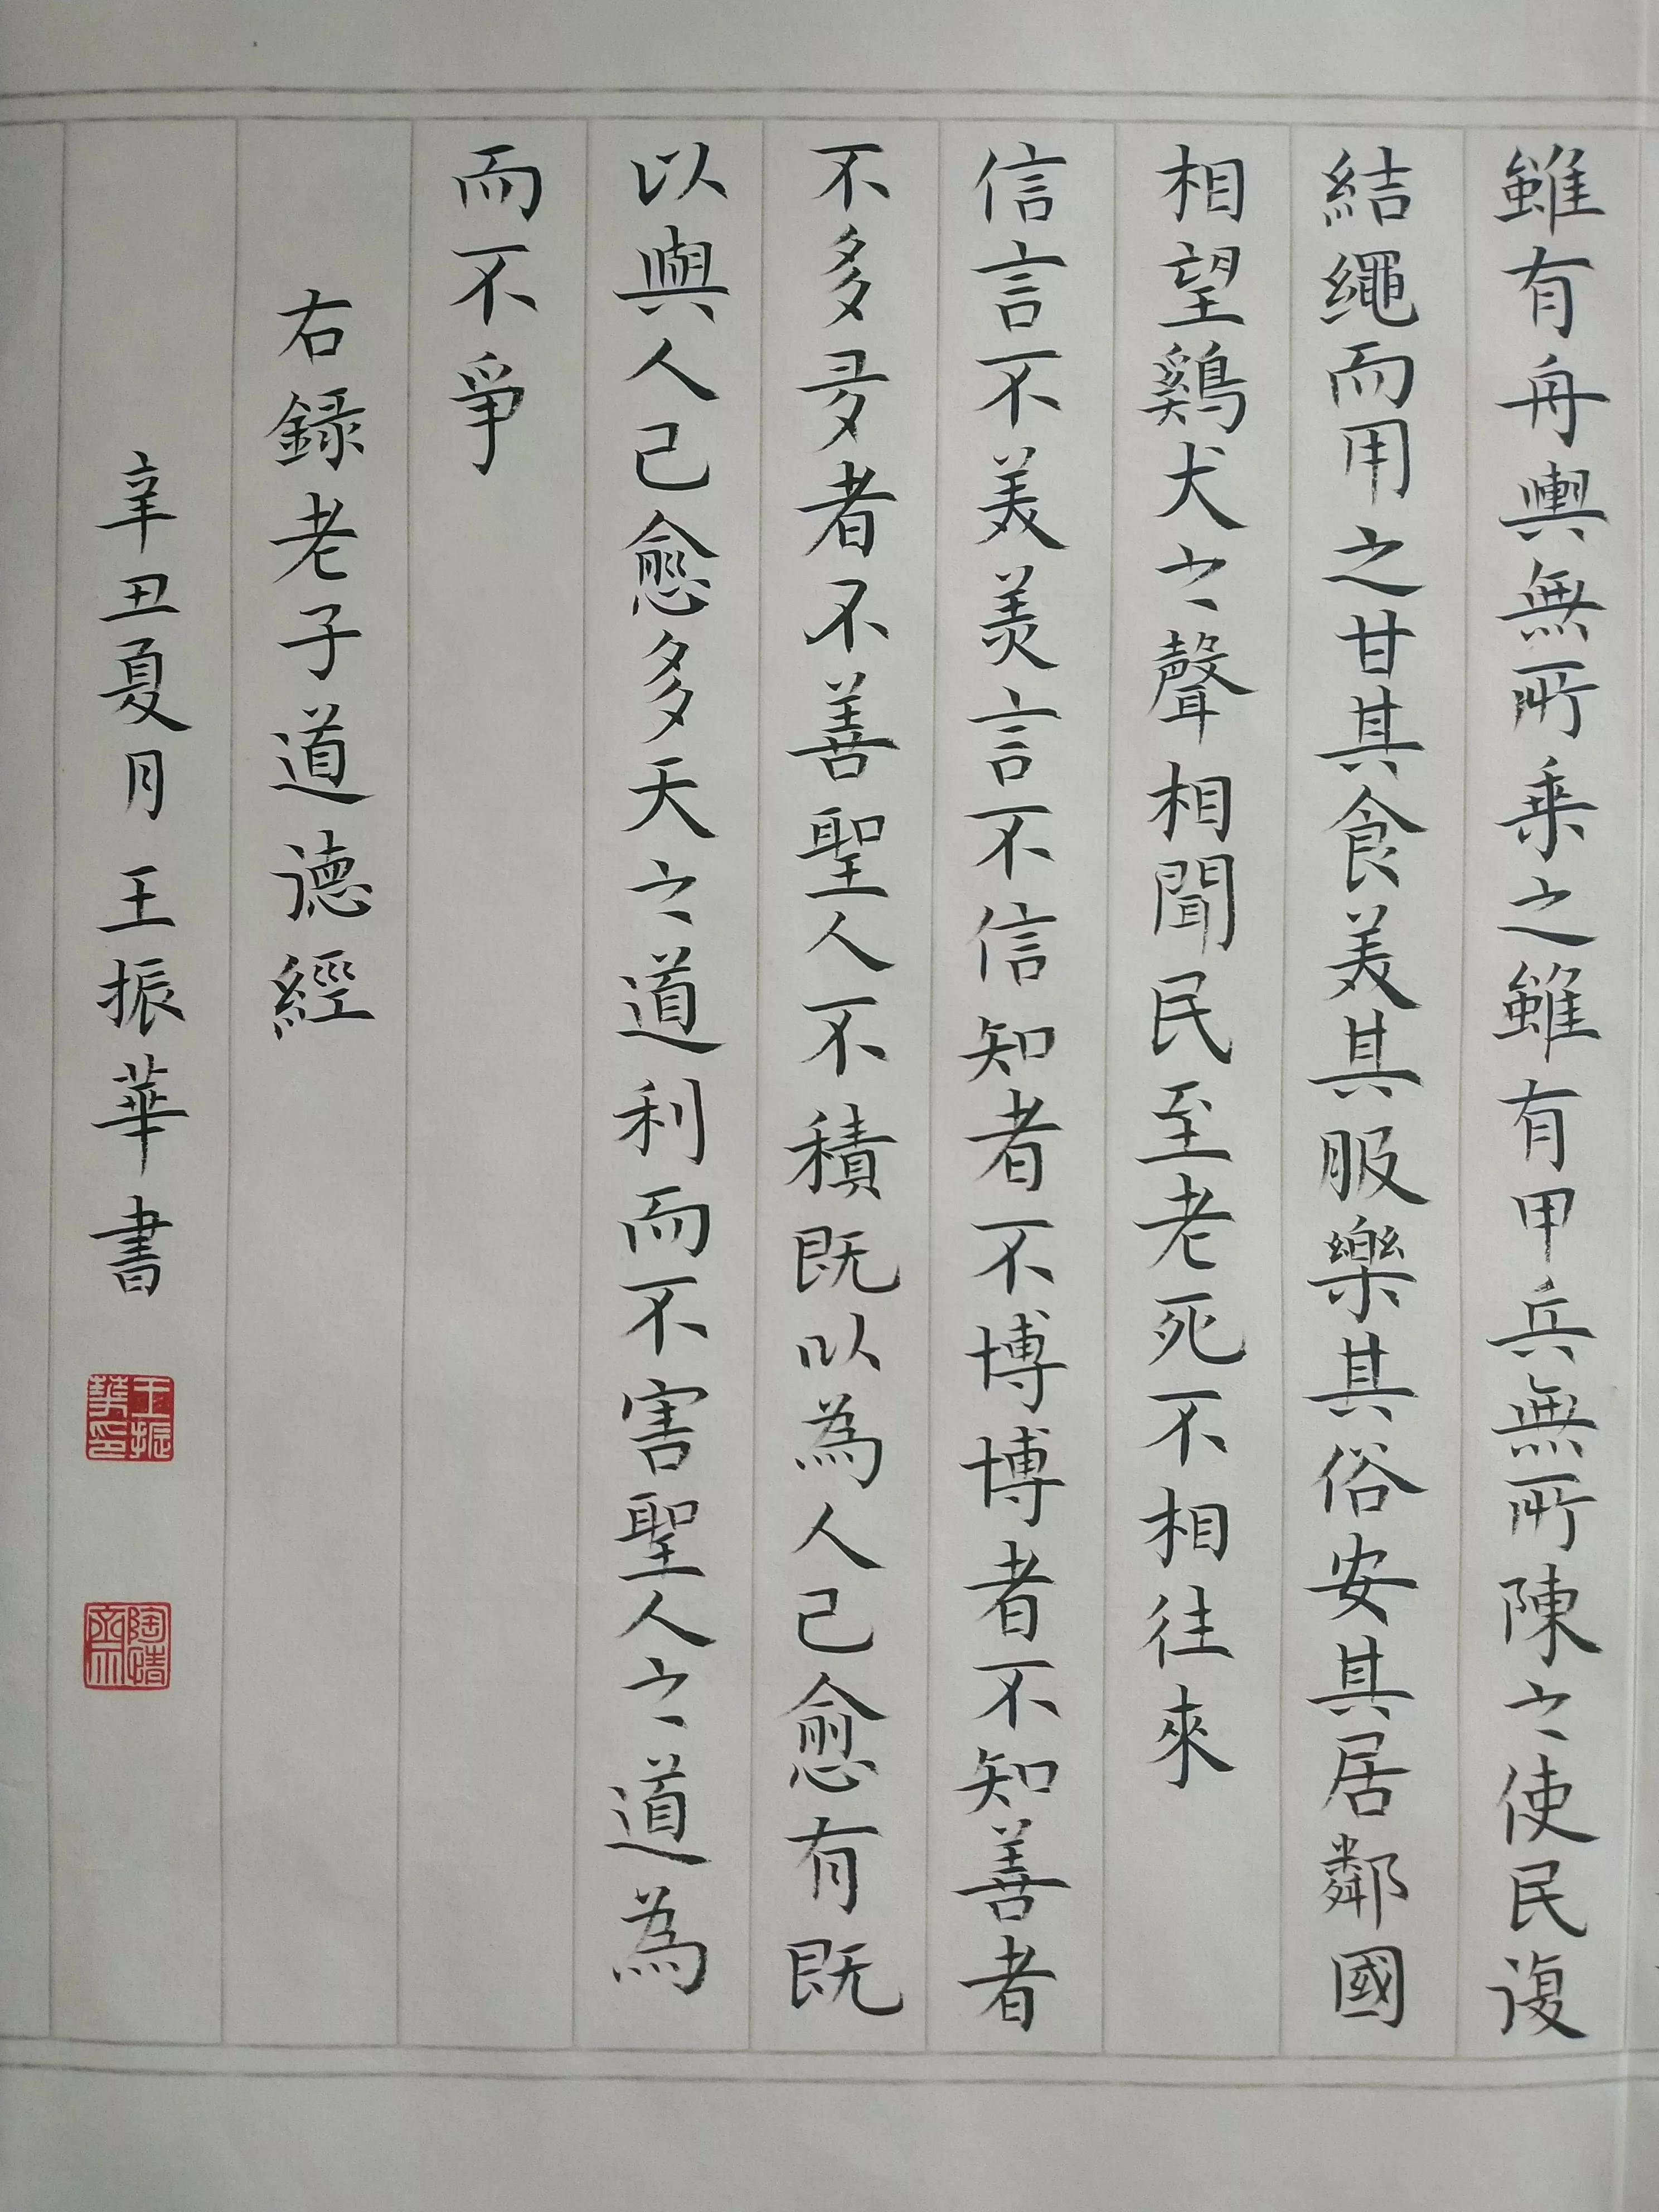 雖有舟輿無所乘之雖有甲兵無所陳之使民復
結繩而用之甘其食美其服樂其俗安其居鄰國
相望鷄犬之聲相聞民至老死不相往來
信言不美美言不信知者不博博者不知善者
不多多者不善聖人不積既以為人己愈有既
以與人己愈多天之道利而不害聖人之道為
而不爭
右録老子道德經
辛丑夏月王振華書
王振華印
陶靖齋